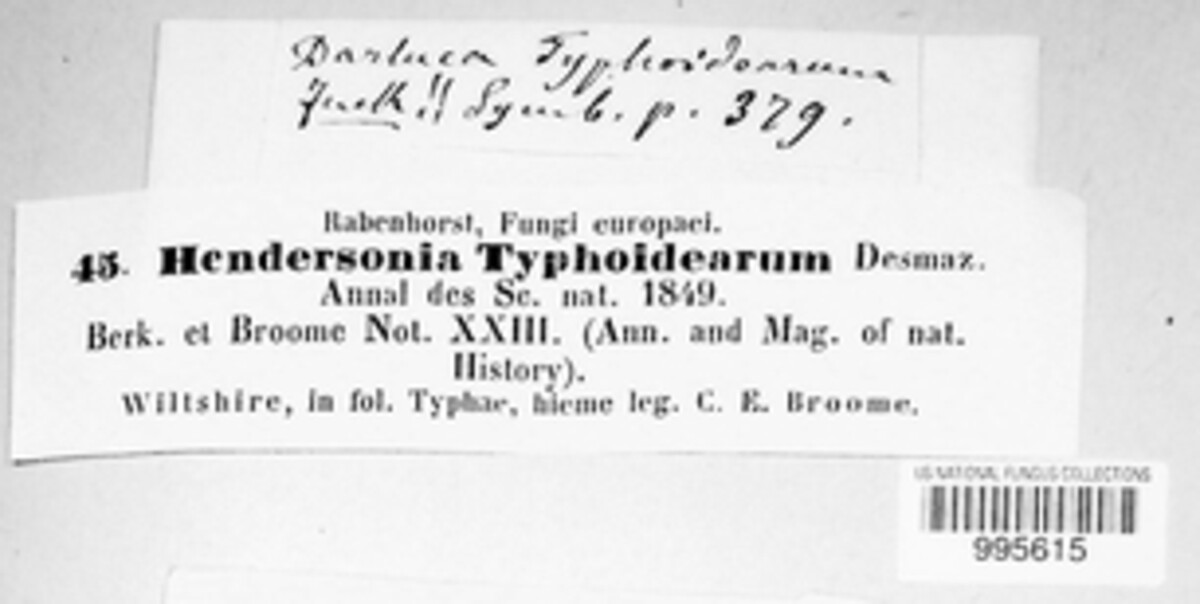 Darluca Typhoidearum
Fuck !! Symb. p. 379.
Rabenhorst, Fungi europaei.
45. Hendersonia Typhoidearum Desmaz.
Annal des Sc. nat. 1849.
Berk. et Broome Not. XXIII. (Ann. and Mag. of nat.
History).
Wiltshire, in fol. Typhae, hieme leg. C. E. Broome.
US NATIONAL FUNGUS COLLECTIONS
995615